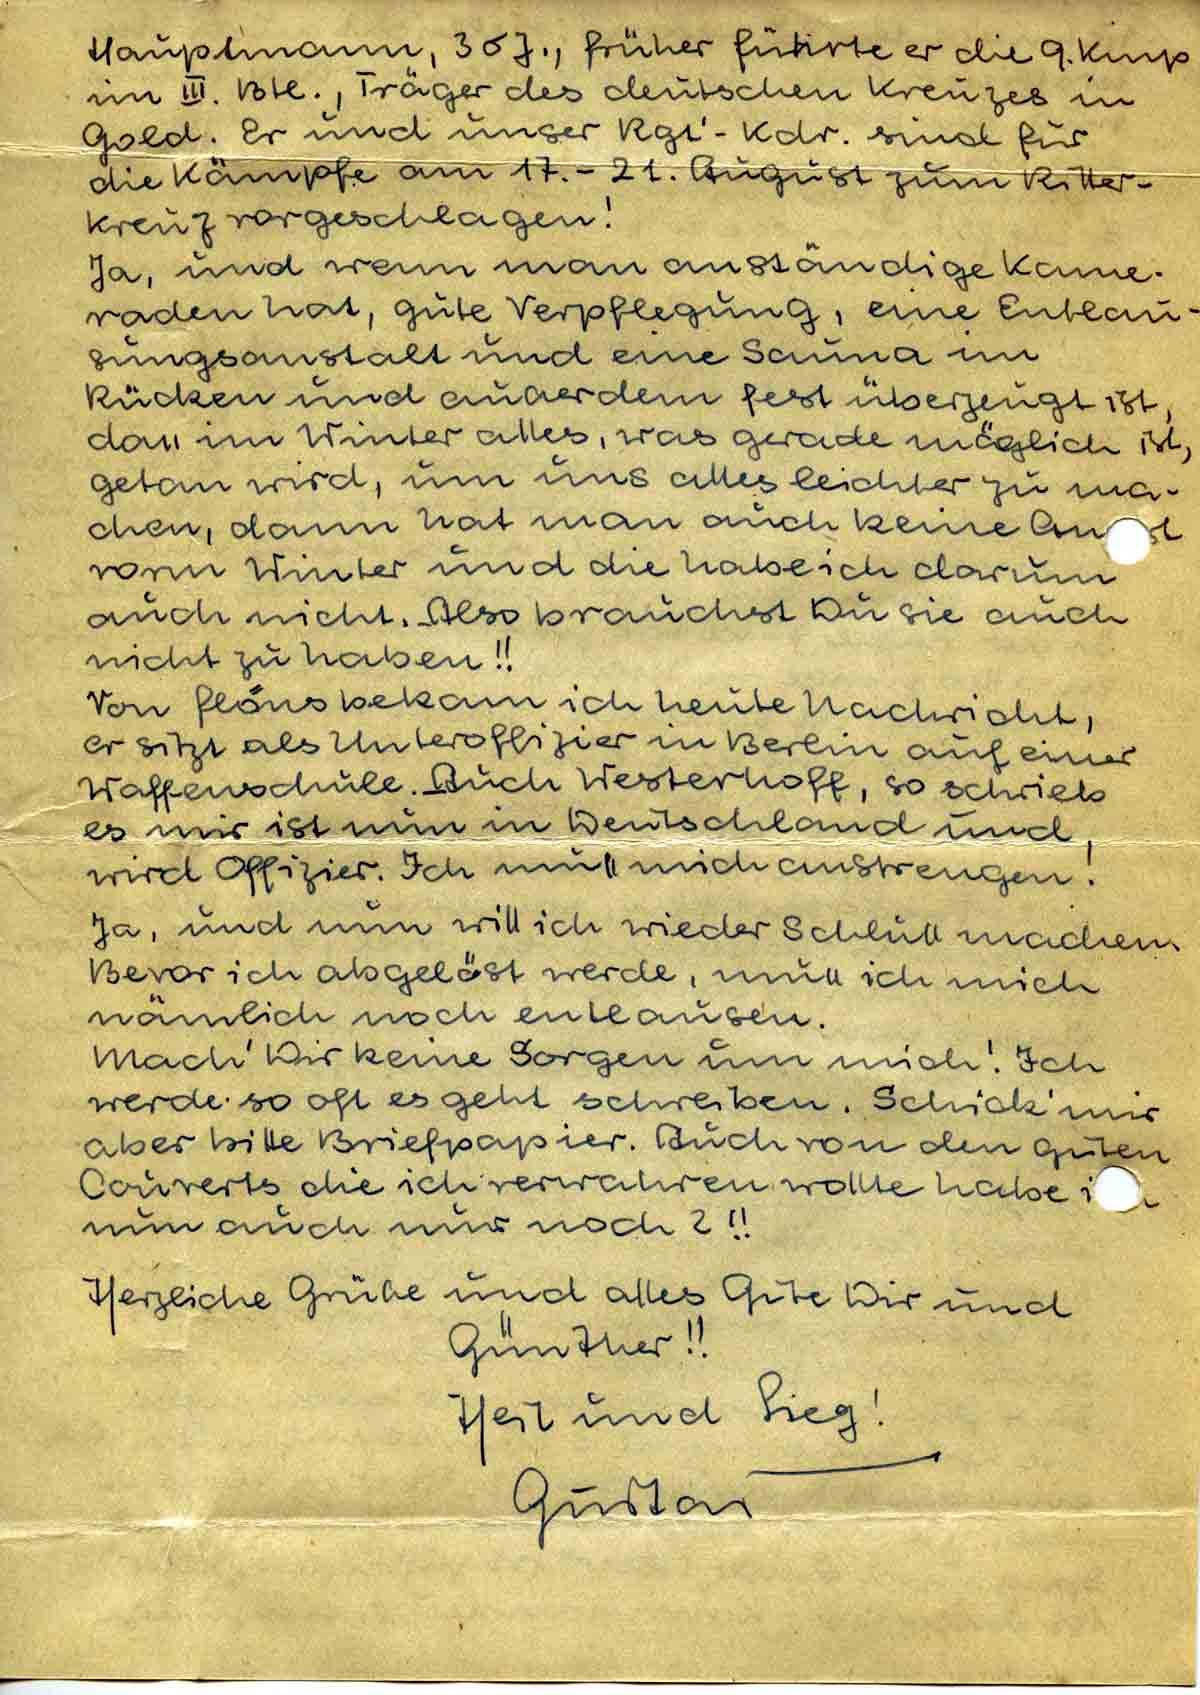 Hauptmann, 30 J., früher führte er die 9. Kmp
im III. Btl., Träger des deutschen Kreuzes in
Gold. Er und unser Rgt'-Kdr. sind für
die Kämpfe am 17.-21. August zum Ritter-
kreuz vorgeschlagen!
Ja, und wenn man anständige Kame-
raden hat, gute Verpflegung, eine Entlau-
sungsanstalt und eine Sauna im
Rücken und außerdem fest überzeugt ist,
daß im Winter alles, was gerade möglich ist,
getan wird, um uns alles leichter zu ma-
chen, dann hat man auch keine Angst
vorm Winter und die habe ich darum
auch nicht. Also brauchst Du sie auch
nicht zu haben!!
Von bekam ich heute Nachricht,
er sitzt als Unteroffizier in Berlin auf einer
Waffenschule. Auch Westerhoff, so schrieb
es mir ist nun in Deutschland und
wird Offizier. Ich muß mich anstrengen!
Ja, und nun will ich wieder Schluß machen.
Bevor ich abgelöst werde, muß ich mich
nämlich noch entlausen.
Mach' Dir keine Sorgen um mich! Ich
werde so oft es geht schreiben. Schick' mir
aber bitte Briefpapier. Auch von den guten
Couverts die ich verwahren wollte habe ich
nun auch nur noch 2!!
Herzliche Grüße und alles Gute Dir und
Günther!!
Heil und Sieg!
Gustav